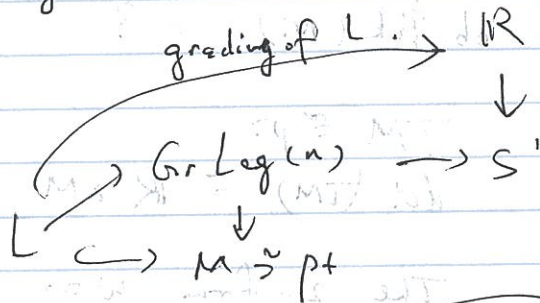 grading of L.
R
Gr Leg (n)
S¹
L
M ≃ pt